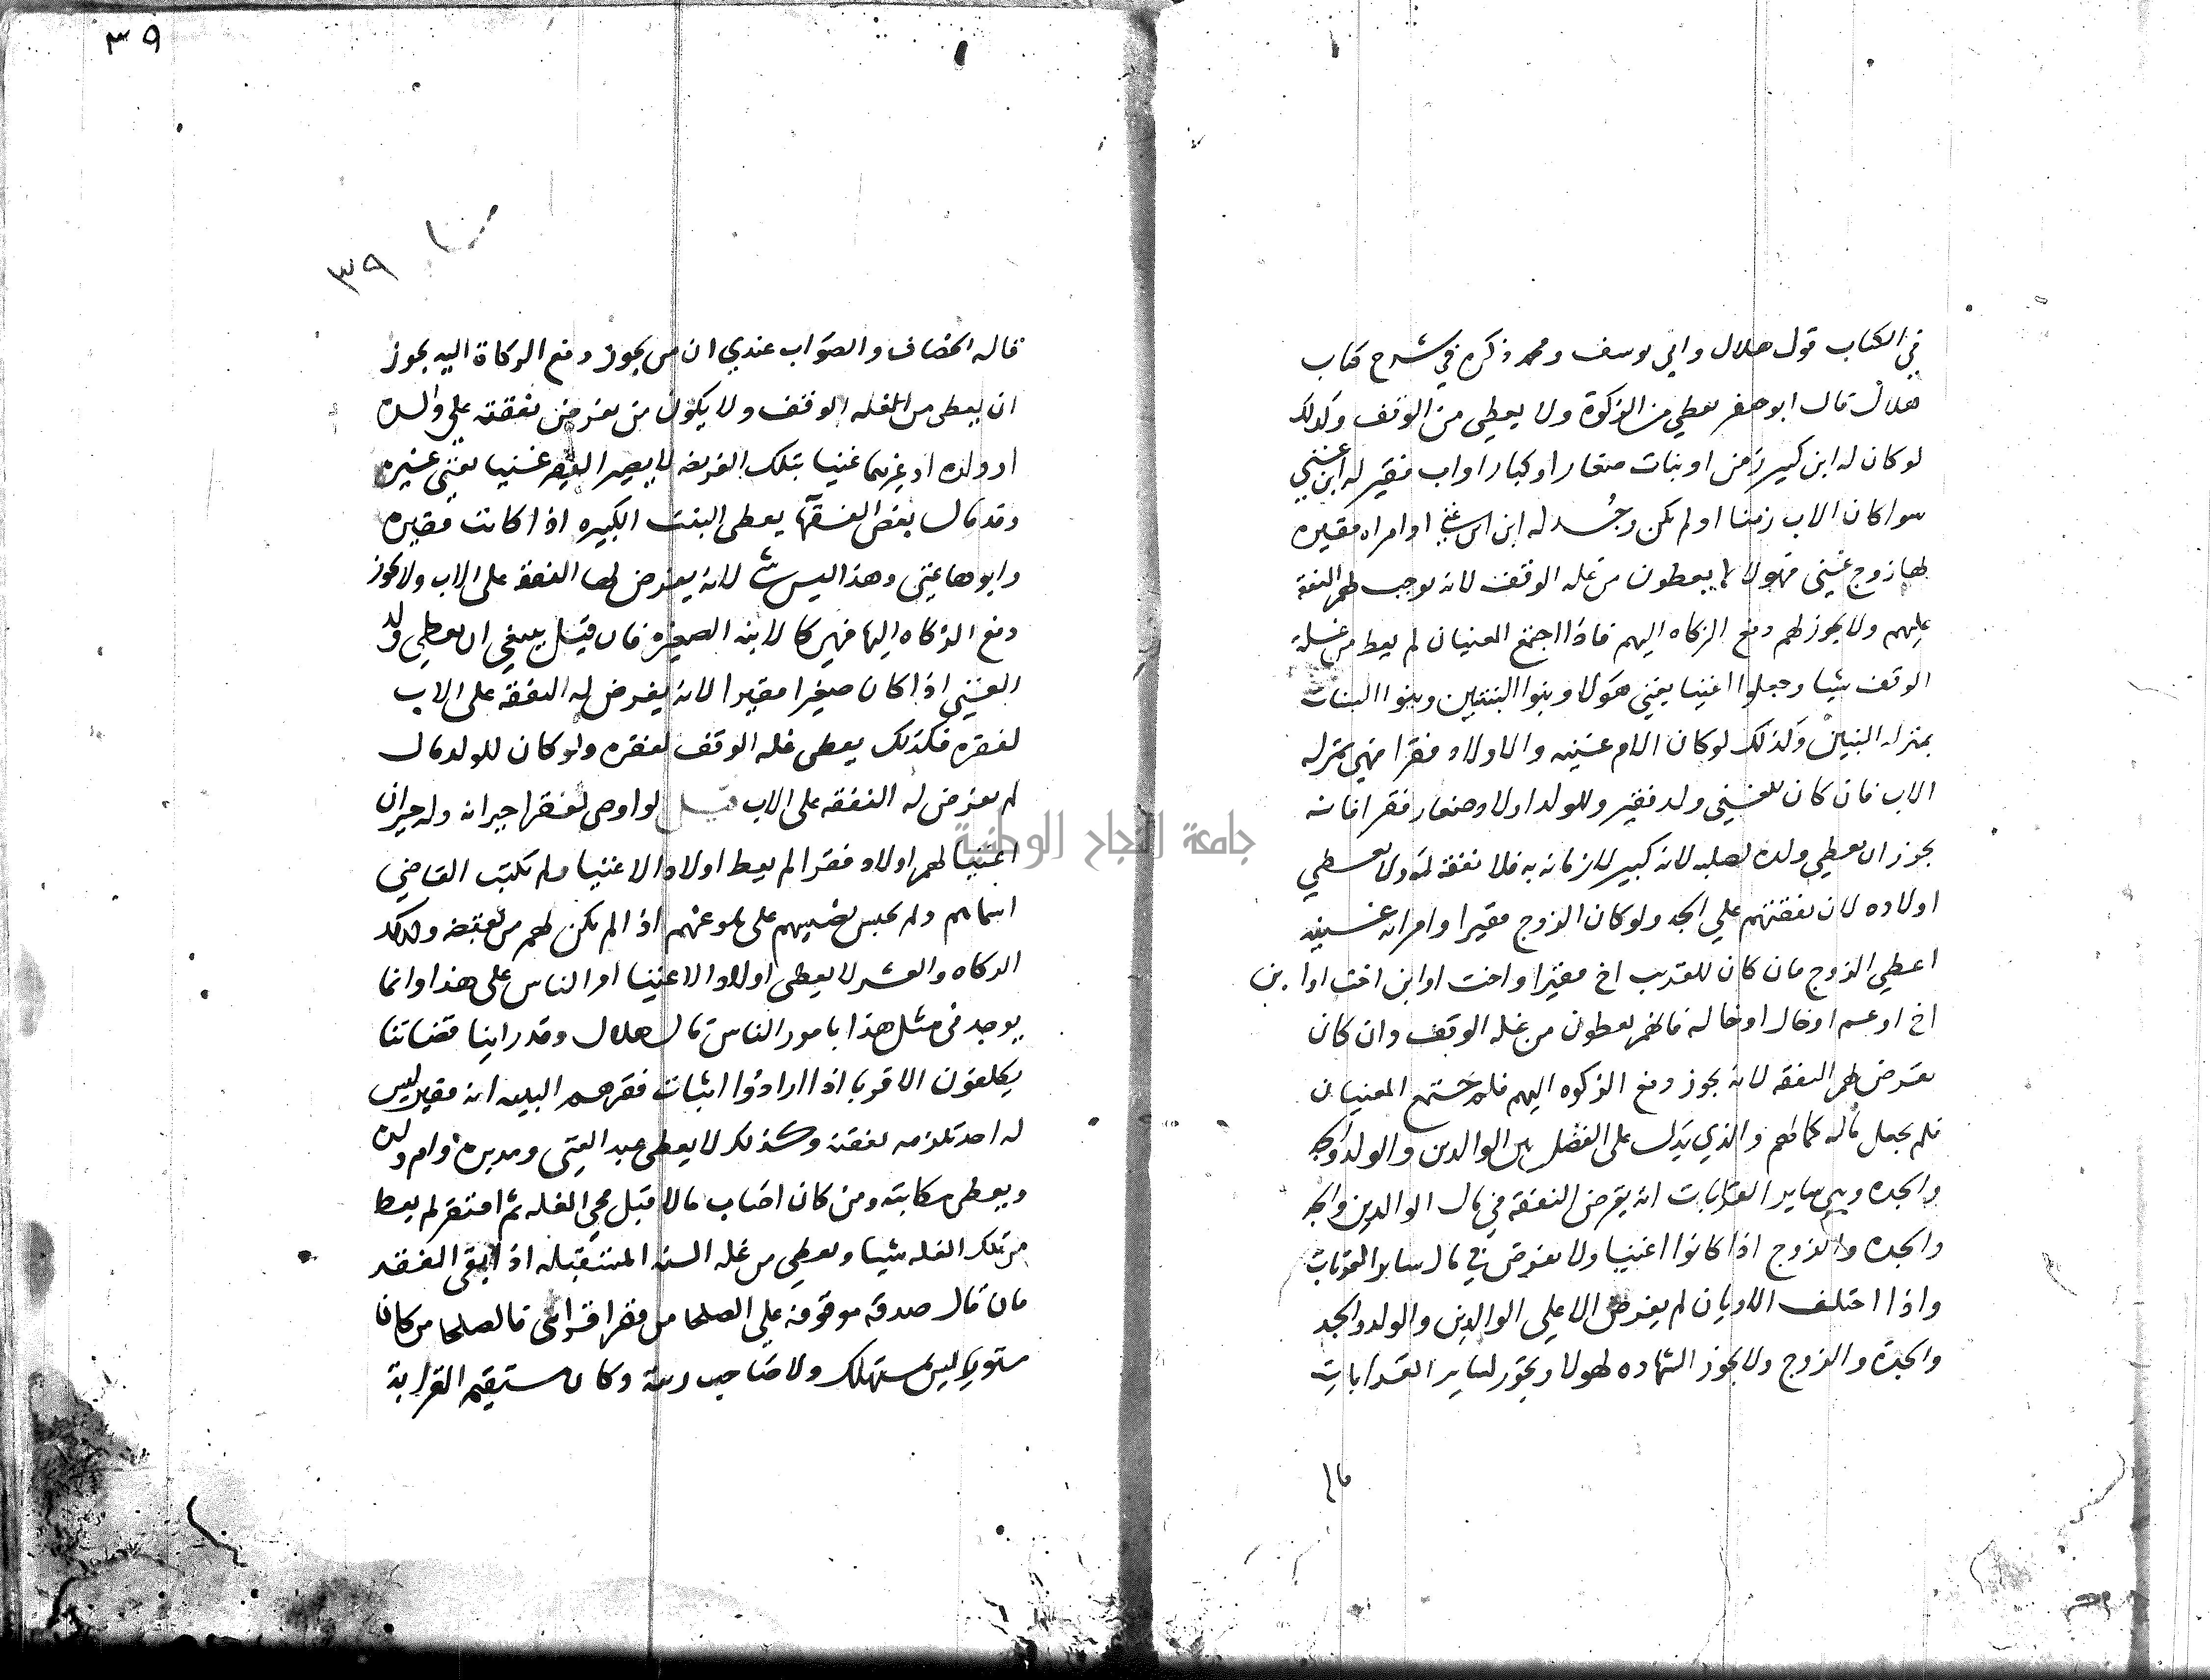 في الكتاب قول هلال وابي يوسف ومحمد ذكره في شرح كتاب
هلال قال ابو جعفر يعطي من الزكوة ولا يعطي من الوقف وكذلك
لو كان له ابن كبير زمن او بنات صغار او كبار او اب فقير له ابن غني
سوا كان الاب زمنا او لم يكن رجل له ابن ابن غني او امراه فقيره
لها زوج غني فهولا لا يعطون من غله الوقف لانه يوجب لهم النفقة
عليهم ولا يجوز لهم دفع الزكاه اليهم فاذا اجتمع المعنيان لم يعط من غلة
الوقف شيا وجعلوا اغنيا يغني هولا وبنوا البنتين وبنوا البنات
بمنزله البنين وكذلك لو كان الام غنيه والاولاد فقرا فهي بمنزله
الاب فان كان للغني ولد فقير وللولد اولاد صغار فقرا فانه
يجوز ان يعطي ولده لصلبه لانه كبير لا زمانه به فلا نفقة له ولا يعطي
اولاده لان نفقتهم علي الجد ولو كان الزوج فقيرا وامراته غنيه
اعطي الزوج فان كان للقريب اخ فقيرا واخت او ابن اخت او ابن
اخ او عم او خال او خاله فانهم يعطون من غله الوقف وان كان
يفرض لهم النفقه لانه يجوز دفع الزكوه اليهم فلم يجتمع المعنيان
فلم يجعل ماله كمالهم والذي يدل على الفصل بين الوالدين والولد والجد
والجده وبين ساير القرابات انه يفرض النفقة في مال الوالدين والجد
والجده والزوج اذا كانوا اغنيا ولا يفرض في مال ساير القرابات
واذا اختلف الاديان لم يفرض الا علي الوالدين والولد والجد
والجدة والزوج ولا يجوز الشهاده لهولا ويجوز لساير القرابات
٣٩
٣٩
قاله الخصاف والصواب عندي ان من يجوز دفع الزكاة اليه يجوز
ان يعطى من الغله الوقف ولا يكون من يفرض نفقته علي والده
او ولده او غيرهما غنيا بتلك الفريضه لا يصير الفقير غنيا بغني غيره
وقد قال بعض الفقهآ يعطى البنت الكبيره اذا كانت فقيره
وابوها غني وهذا ليس لانه يفرض لها النفقة على الاب ولا يجوز
دفع الزكاه اليها فهي كالابنه الصغيره فان قيل ينبغي ان يعطي ولد
الغني اذا كان صغيرا فقيرا لانه يفرض له النفقة على الاب
لفقره فكذلك يعطى غله الوقف لفقره ولو كان للولد مال
لم يفرض له النفقه على الاب قيل لو اوصى لفقرا جيرانه وله جيران
اغنيا لهم اولاد فقرا لم يعط اولاد الاغنيا ولم تكتب القاضي
اسماهم ولم يحبس نصيبهم على بلوغهم اذا لم يكن لهم من يقبضه وكذلك
الزكاه والعشر لا يعطى اولاد الاغنيا امر الناس على هذا وانما
يوجد في مثل هذا بامور الناس قال هلال وقد راينا قضاتنا
يكلفون الاقربا اذا ارادوا اثبات فقرهم البينه انه فقير ليس
له احد تلزمه نفقته وكذلك لا يعطى عبد الغني ومدبره وام ولده
ويعطى مكاتبه ومن كان اصاب مالا قبل مجي الغله ثم افتقر لم يعط
من تلك الغله شيا ويعطي من غله السنه المستقبله اذا بقى الفقد
فان قال صدقه موقوفه علي الصلحا من فقرا قرابتى فالصلحا من كان
مستويا ليس بمتهتك ولا صاحب ريبة وكان مستقيم الطريقة
جامعة النجاح الوطنية